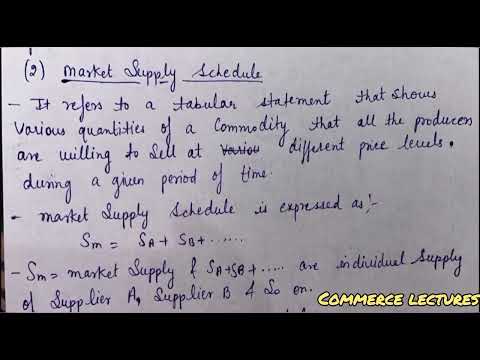 (2) Market Supply Schedule
- It refers to a tabular statement that shows
various quantities of a commodity that all the producers
are willing to sell at variou different price levels.
during a given period of time.
- market Supply Schedule is expressed as:-
Sm = SA + SB + ......
- Sm = market Supply & SA+SB+..... are individual Supply
of Supplier A, Supplier B & So on.
COMMERCE LECTURES